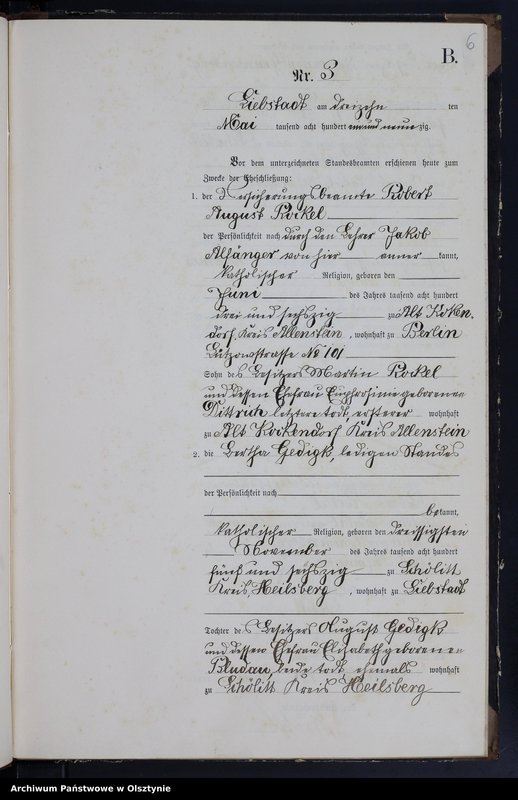 6
B.
Nr. 3
Liebstadt am dreizehn ten
Mai tausend acht hundert ein und neun zig.
Vor dem unterzeichneten Standesbeamten erschienen heute zum
Zwecke der Eheschließung:
1. der Versicherungsbeamte Robert
August Rockel
der Persönlichkeit nach durch den Lehrer Jakob
von hier anner kannt,
katholischer Religion, geboren den
Juni des Jahres tausend acht hundert
zwei und sechszig zu Alt Koken
dorf, Kreis Allenstein, wohnhaft zu Berlin
Lützowstrasse No 101
Sohn des Besitzers Martin Rockel
und dessen Ehefrau Euphrosine geborenen
Dittrich letztere todt, ersterer wohnhaft
zu Alt Kokendorf Kreis Allenstein
2. die Bertha Gedigk, ledigen Standes
der Persönlichkeit nach
bekannt,
katholischer Religion, geboren den dreissigsten
November des Jahres tausend acht hundert
fünf und sechszig zu Schölitt
Kreis Heilsberg, wohnhaft zu Liebstadt
Tochter des Besitzers August Gedigk
und dessen Ehefrau Elisabeth geborenen
Bludau, beide todt, ehemals wohnhaft
zu Schölitt Kreis Heilsberg
Archiwum Państwowe w Olsztynie